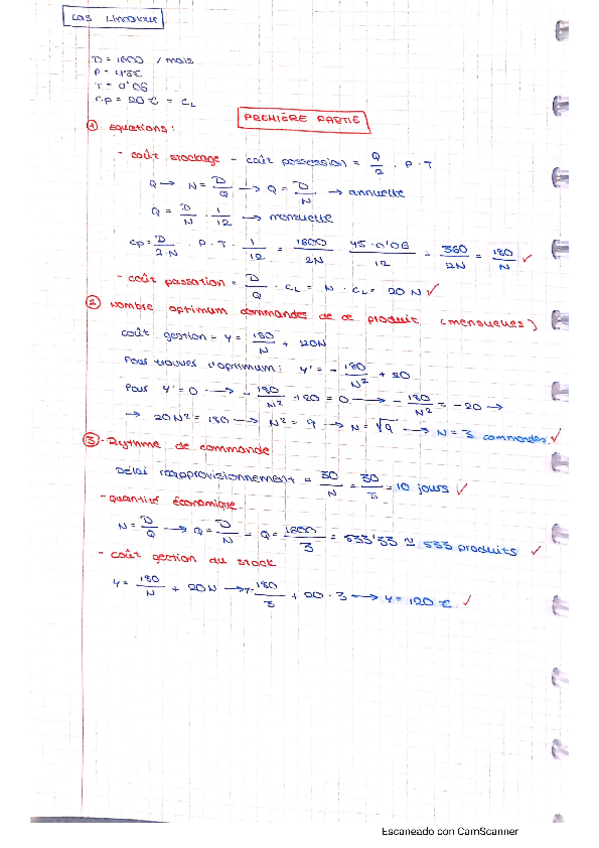 D = 1600 / mois
P = 45€
T = 0'06
Cp = 20 € = CL
PREMIÈRE PARTIE
① Equations:
- coût stockage - coût possession = Q/2 · P · T
Q → N = D/Q → Q = D/N → annuelle
Q = D/N · 1/12 → mensuelle
Cp = D/2·N · P · T · 1/12 = 1600/2N · 45·0'06/12 = 360/2N = 180/N ✓
- coût passation = D/Q · CL = N · CL = 20 N ✓
② Nombre optimum commandes de ce produit (mensuelles)
coût gestion = Y = 180/N + 20N
Pour trouver l'optimum: Y' = - 180/N² + 20
Pour Y' = 0 → - 180/N² + 20 = 0 → - 180/N² = -20 →
→ 20N² = 180 → N² = 9 → N = √9 → N = 3 commandes. ✓
③ - Rythme de commande
Délai réapprovisionnement = 30/N = 30/3 = 10 jours ✓
- quantité économique
N = D/Q → Q = D/N - Q = 1600/3 = 533'33 ≈ 533 produits ✓
- coût gestion du stock
Y = 180/N + 20N → Y = 180/3 + 20 · 3 → Y = 120 € ✓
Escaneado con CamScanner